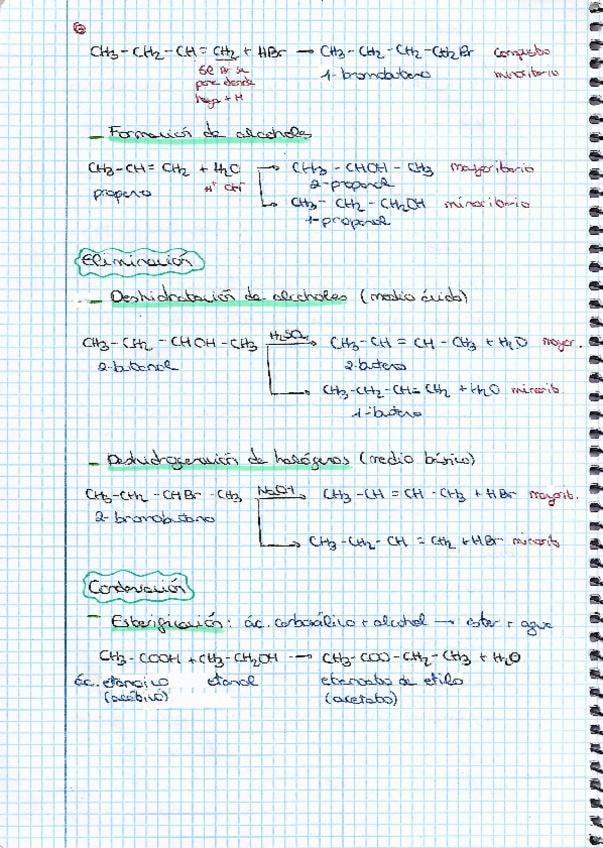 CH₃-CH₂-CH=CH₂ + HBr → CH₃-CH₂-CH₂-CH₂Br compuesto
1-bromobutano minoritario
se Br se
pone donde
haya + H
- Formación de alcoholes
CH₃-CH=CH₂ + H₂O → CH₃-CHOH-CH₃ mayoritario
propeno 2-propanol
CH₃-CH₂-CH₂OH minoritario
1-propanol
Eliminación
- Deshidratación de alcoholes (medio ácido)
CH₃-CH₂-CHOH-CH₃ H₂SO₄ → CH₃-CH=CH-CH₃ + H₂O mayor.
2-butanol 2-buteno
CH₃-CH₂-CH=CH₂ + H₂O minorit.
1-buteno
- Deshidrogenación de halógenos (medio básico)
CH₃-CH₂-CHBr-CH₃ NaOH → CH₃-CH=CH-CH₃ + HBr mayorit.
2-bromobutano
CH₃-CH₂-CH=CH₂ + HBr minorit.
Condensación
- Esterificación: ác. carboxílico + alcohol → ester + agua
CH₃-COOH + CH₃-CH₂OH → CH₃-COO-CH₂-CH₃ + H₂O
ác. etanoico etanol etanoato de etilo
(acético) (acetato)